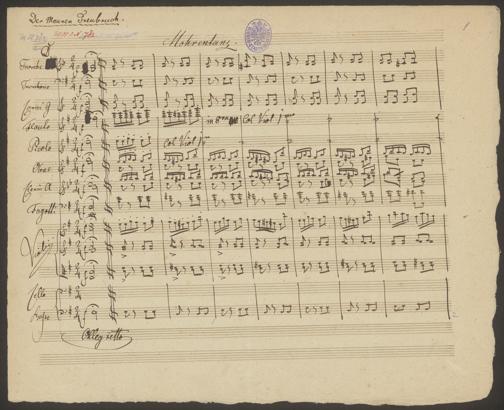 Der Mauren Treubruch.
1
Mohrentanz.
Trombe
Tromboni
Corni G
Flauto
in 8va
Col Viol 1mo
Picolo
Col Viol 1mo
Oboe
Corni A
Fagotti
Violini
Cello
Basso
Allegretto